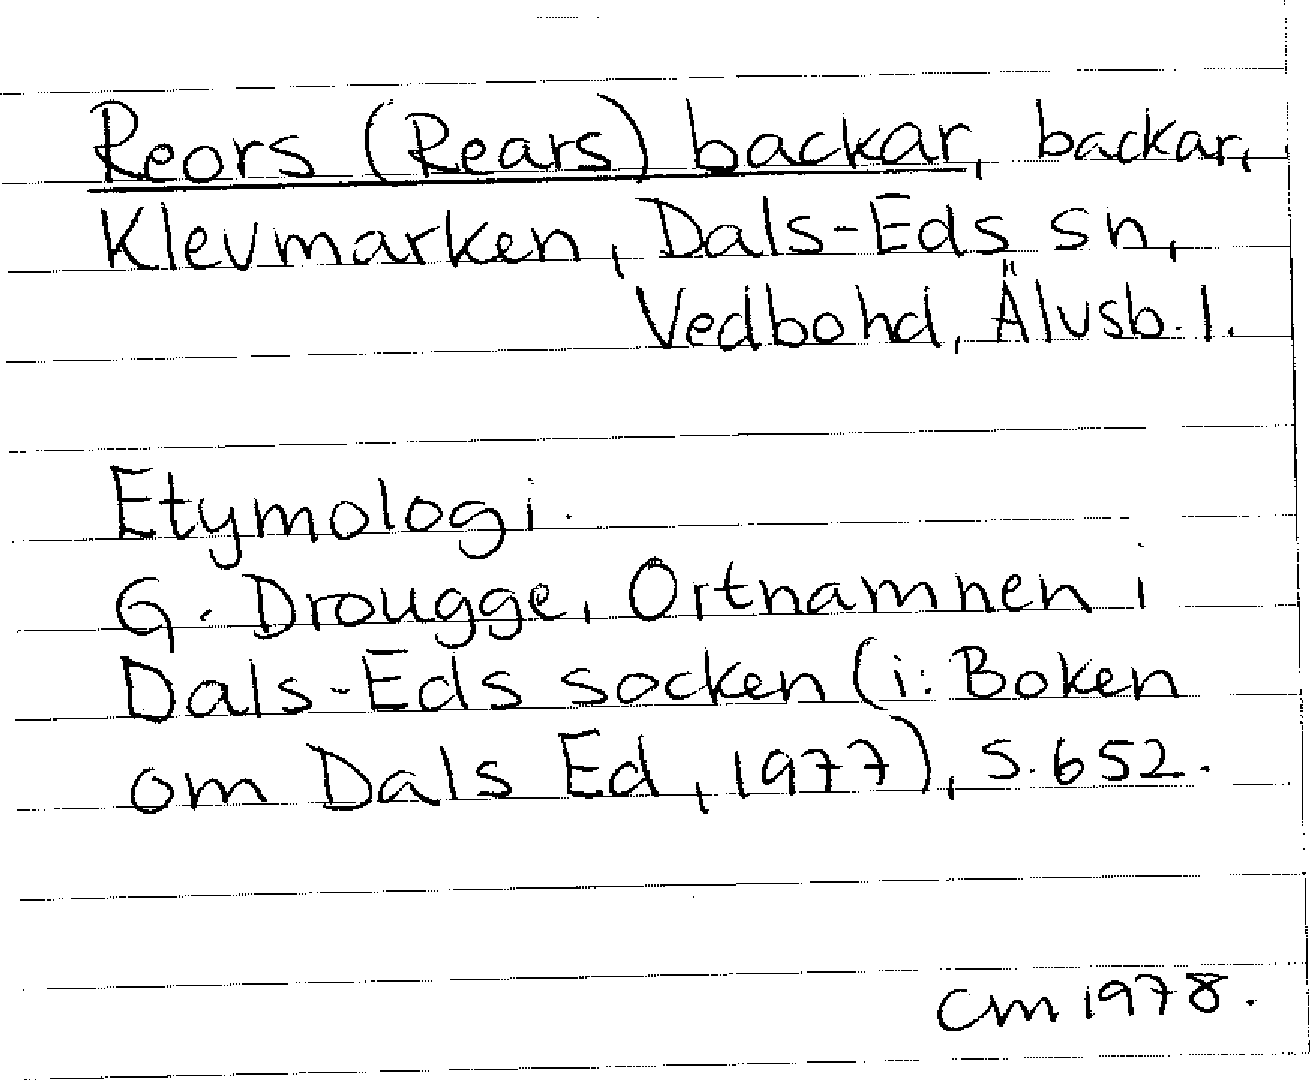 Reors (Rears) backar, backar,
Klevmarken, Dals-Eds sn,
Vedbo hd, Älvsb. l.
Etymologi.
G. Drougge, Ortnamnen i
Dals-Eds socken (i: Boken
om Dals Ed, 1977), s. 652.
CM 1978.